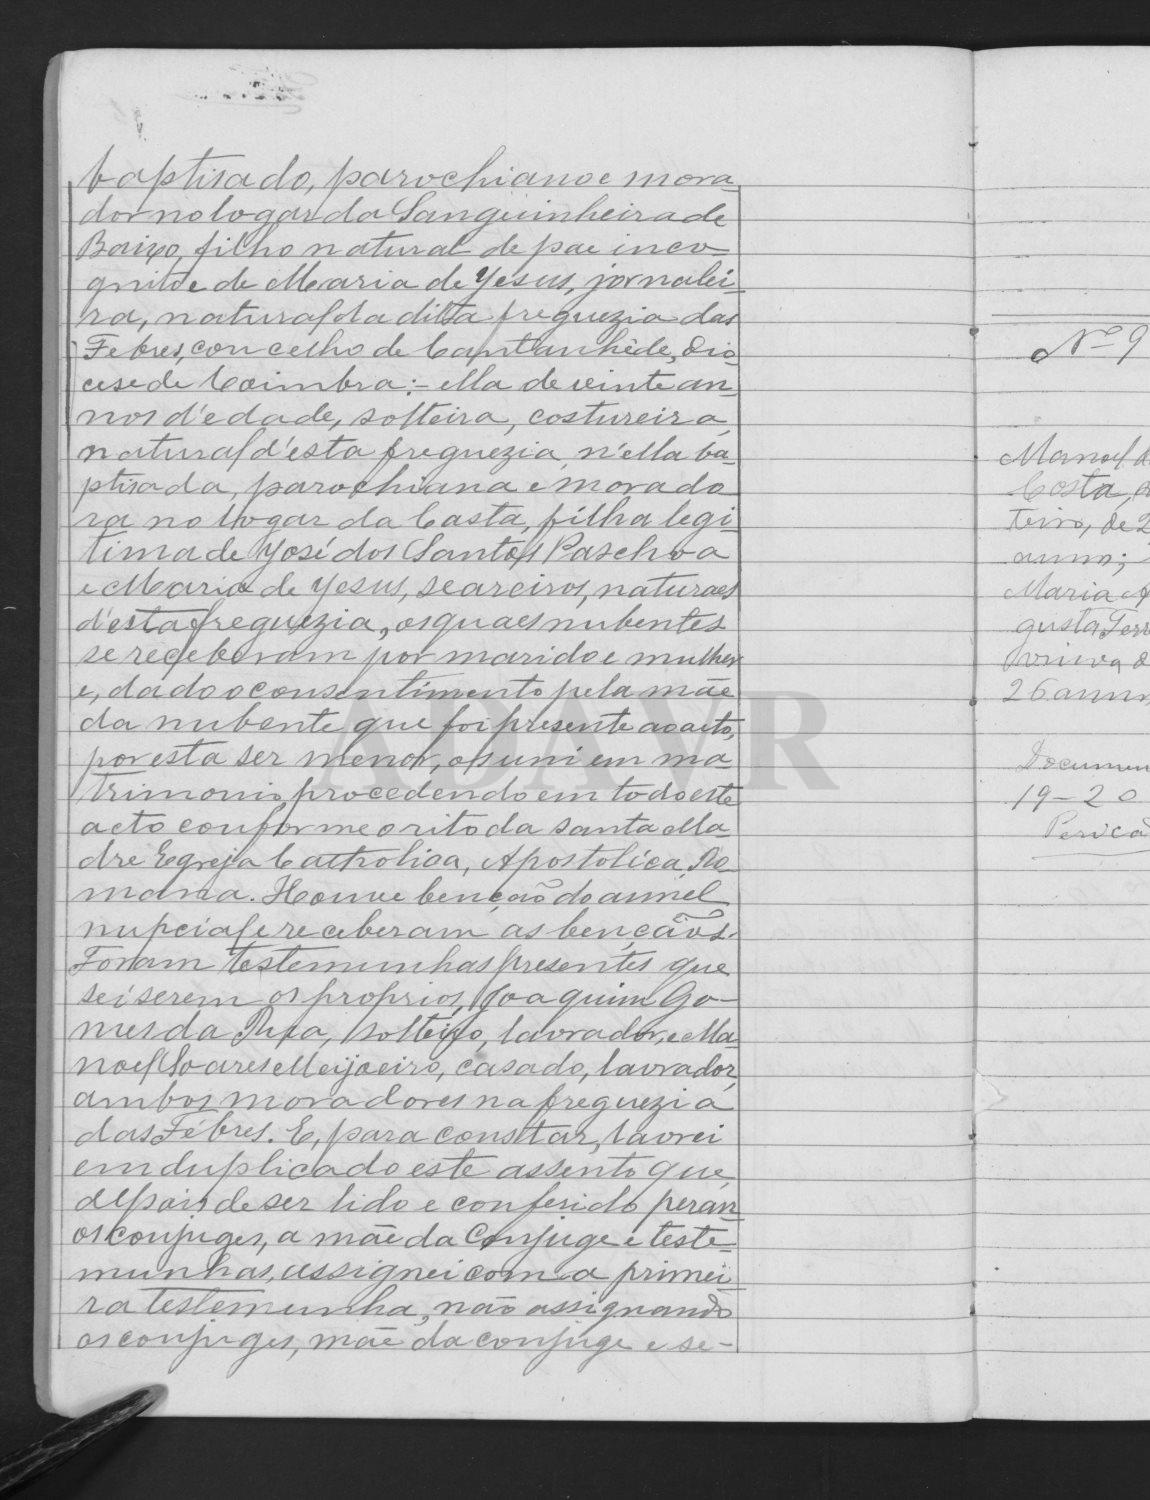 baptisado, parochiano e mora-
dor no logar da Sanguinheira de
Baixo, filho natural de pae inco-
gnito e de Maria de Yesus, jornalei-
ra, natural da dita freguezia das
Febres, concelho de Cantanhêde, Dio-
cese de Coimbra:- ella de veinte an-
nos d'edade, solteira, costureira,
natural d'esta freguezia, n'ella ba-
ptisada, parochiana e morado-
ra no logar da Casta, filha legi-
tima de Yosé dos Santos Paschoa
e Maria de Yesus, seareiros, naturaes
d'esta freguezia, os quaes nubentes
se receberam por marido e mulher
e, dado o consentimento pela mãe
da nubente que foi presente ao acto,
por esta ser menor, os uni em ma-
trimonio, procedendo em todo este
acto conforme o rito da Santa Ma-
dre Egreja Catholica, Apostolica, Ro-
mana. Houve benção do annel
nupcial e receberam as bençãos.
Foram testemunhas presentes que
sei serem os proprios, Joaquim Go-
mes da Rua, solteiro, lavrador, e Ma-
noel Soares Meijoeiro, casado, lavrador,
ambos moradores na freguezia
das Fébres. E, para constar, lavrei
em duplicado este assento que,
depois de ser lido e conferido peran-
os conjuges, a mãe da Conjuge e teste-
munhas, assignei com a primei-
ra testemunha, não assignando
os conjuges, mãe da conjuge e se-
Nº 9
Manoel d
Costa,
teiro, de 2
annos;
Maria A
gusta Ferr
viuva, d
26 annos
Documen
19-20